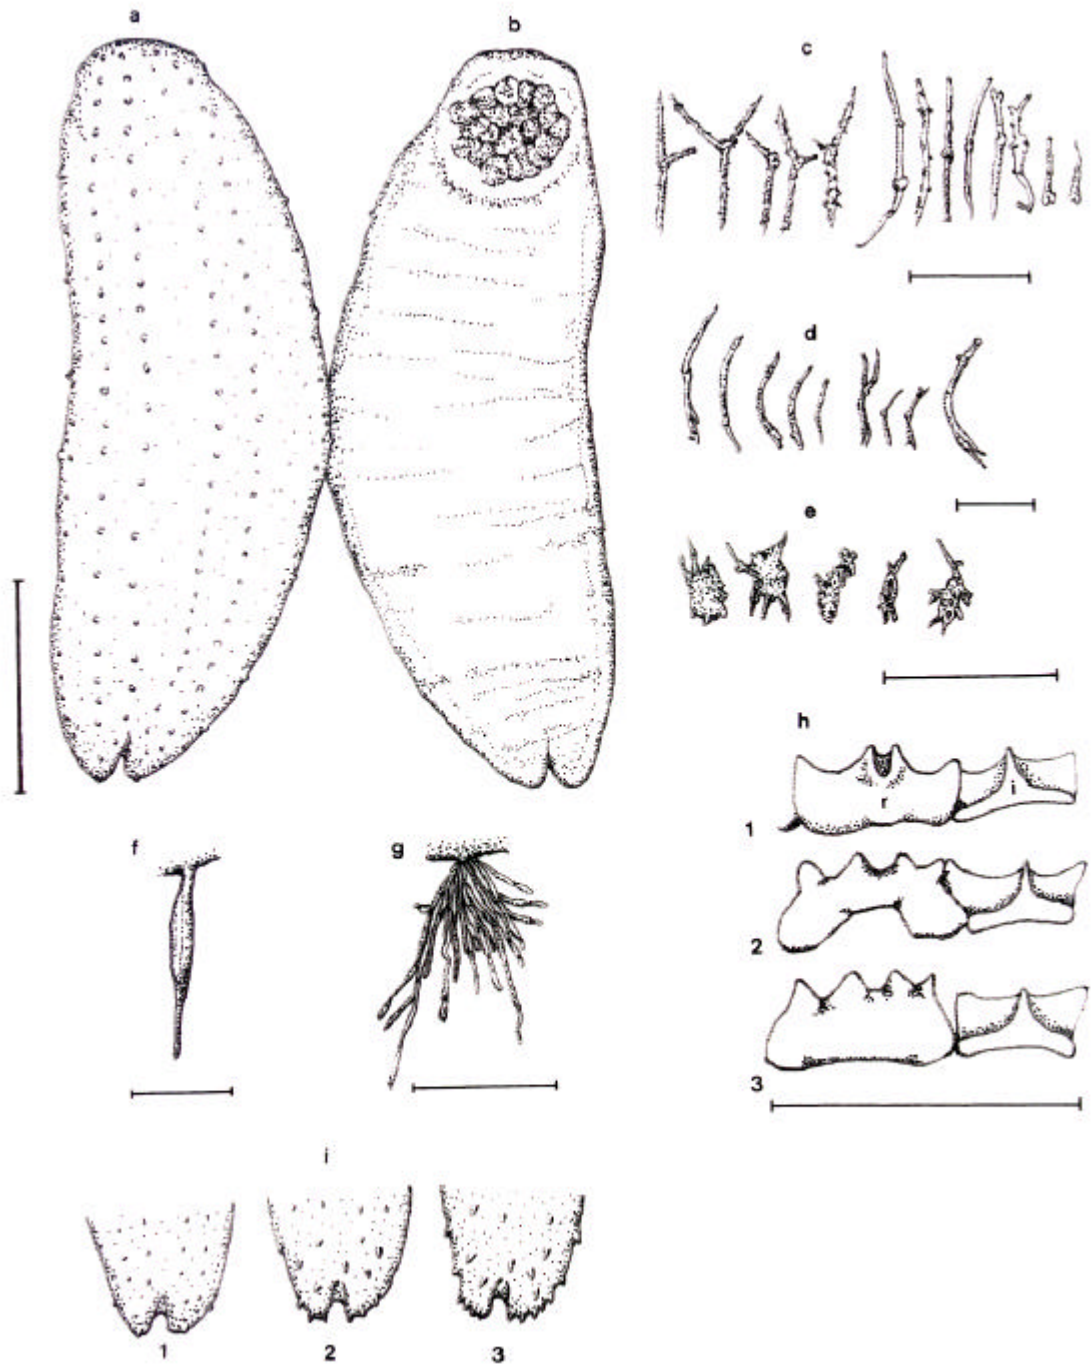 a
b
c
d
e
h
r
i
1
2
3
f
g
i
1
2
3